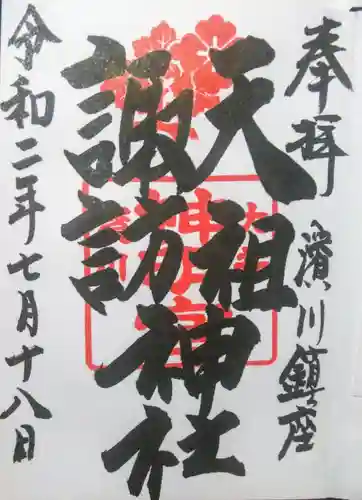 奉拝
濱川鎮座
天祖
諏訪神社
令和二年七月十八日